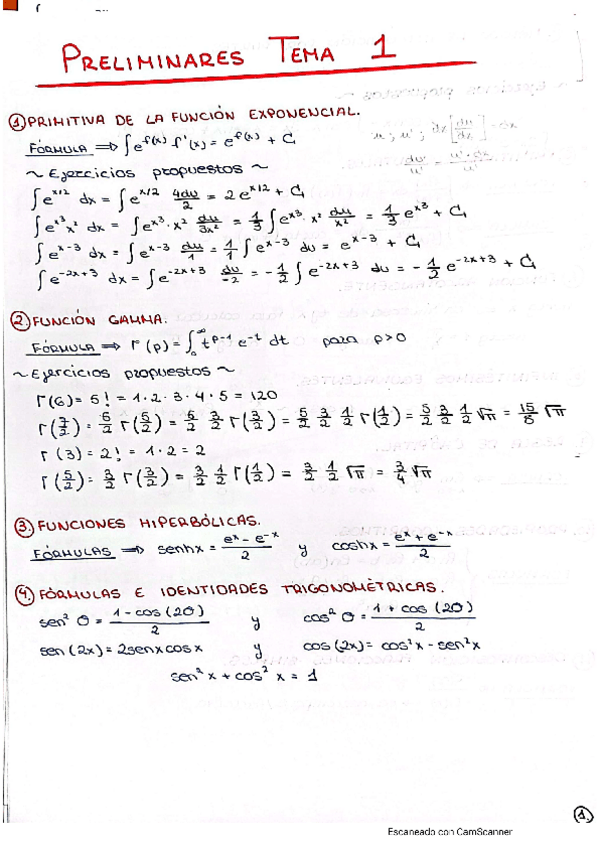 PRELIMINARES TEMA 1
① PRIMITIVA DE LA FUNCIÓN EXPONENCIAL.
FÓRMULA ⟹ ∫e^{f(x)} f'(x) = e^{f(x)} + C
~ Ejercicios propuestos ~
∫e^{x/2} dx = ∫e^{x/2} 4du/2 = 2e^{x/2} + C
∫e^{x³} x² dx = ∫e^{x³} · x² du/3x² = 1/3 ∫e^{x³} · x² du/x² = 1/3 e^{x³} + C
∫e^{x-3} dx = ∫e^{x-3} du/1 = 1/1 ∫e^{x-3} du = e^{x-3} + C
∫e^{-2x+3} dx = ∫e^{-2x+3} du/-2 = -1/2 ∫e^{-2x+3} du = -1/2 e^{-2x+3} + C
② FUNCIÓN GAMMA.
FÓRMULA ⟹ Γ(p) = ∫₀^∞ t^{p-1} e^{-t} dt para p>0
~ Ejercicios propuestos ~
Γ(6) = 5! = 1·2·3·4·5 = 120
Γ(7/2) = 5/2 Γ(5/2) = 5/2 3/2 Γ(3/2) = 5/2 3/2 1/2 Γ(1/2) = 5/2 3/2 1/2 √π = 15/8 √π
Γ(3) = 2! = 1·2 = 2
Γ(5/2) = 3/2 Γ(3/2) = 3/2 1/2 Γ(1/2) = 3/2 1/2 √π = 3/4 √π
③ FUNCIONES HIPERBÓLICAS.
FÓRMULAS ⟹ senhx = (e^x - e^{-x})/2 y coshx = (e^x + e^{-x})/2
④ FÓRMULAS E IDENTIDADES TRIGONOMÉTRICAS.
sen² θ = (1 - cos(2θ))/2 y cos² θ = (1 + cos(2θ))/2
sen(2x) = 2senxcosx y cos(2x) = cos²x - sen²x
sen²x + cos²x = 1
①
Escaneado con CamScanner